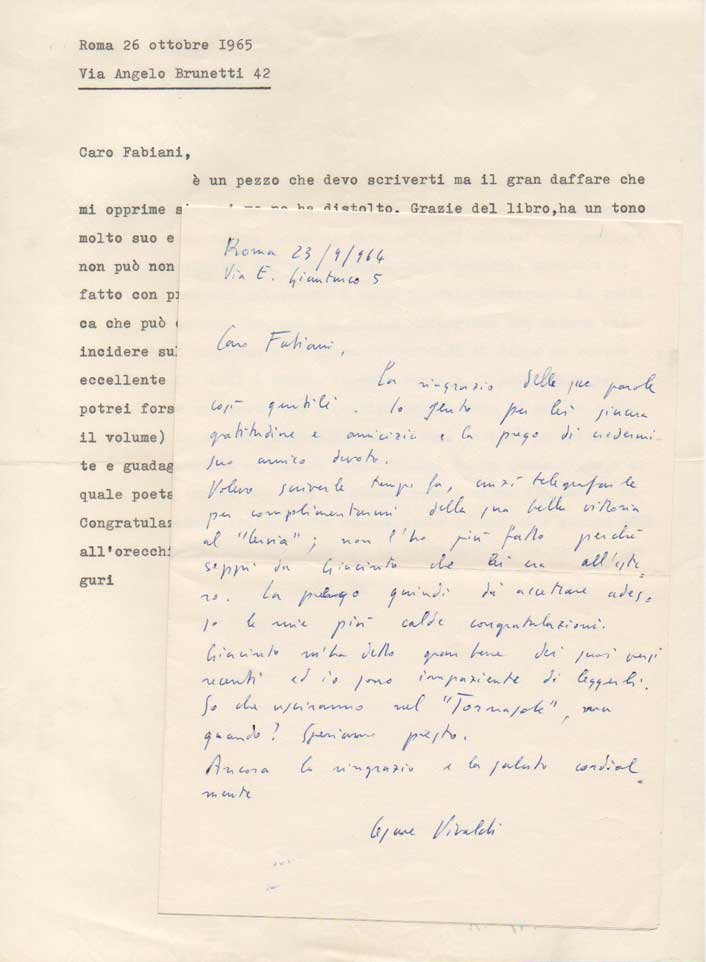 Roma 26 ottobre I965
Via Angelo Brunetti 42
Caro Fabiani,
è un pezzo che devo scriverti ma il gran daffare che
mi opprime ha distolto. Grazie del libro,ha un tono
molto suo e
non può non
fatto con
ca che può
incidere
eccellente
potrei
il volume)
te e
quale poeta
all'orecchi
guri
Roma 23/9/964
Via E. Gianturco 5
Caro Fabiani,
La ringrazio delle sue parole
così gentili. Io sento per lei sincera
gratitudine e amicizia e la prego di credermi
suo amico devoto.
Volevo scriverle tempo fa, anzi telegrafarle
per complimentarmi della sua bella vittoria
al "Cervia"; non l'ho più fatto perchè
seppi da Giacinto che lei era all'este-
ro. La prego quindi di accettare ades-
so le mie più calde congratulazioni.
Giacinto m'ha detto gran bene dei suoi versi
recenti ed io sono impaziente di leggerli.
So che usciranno nel "Tornasole", ma
quando? Speriamo presto.
Ancora la ringrazio e la saluto cordial-
mente
Cesare Vivaldi